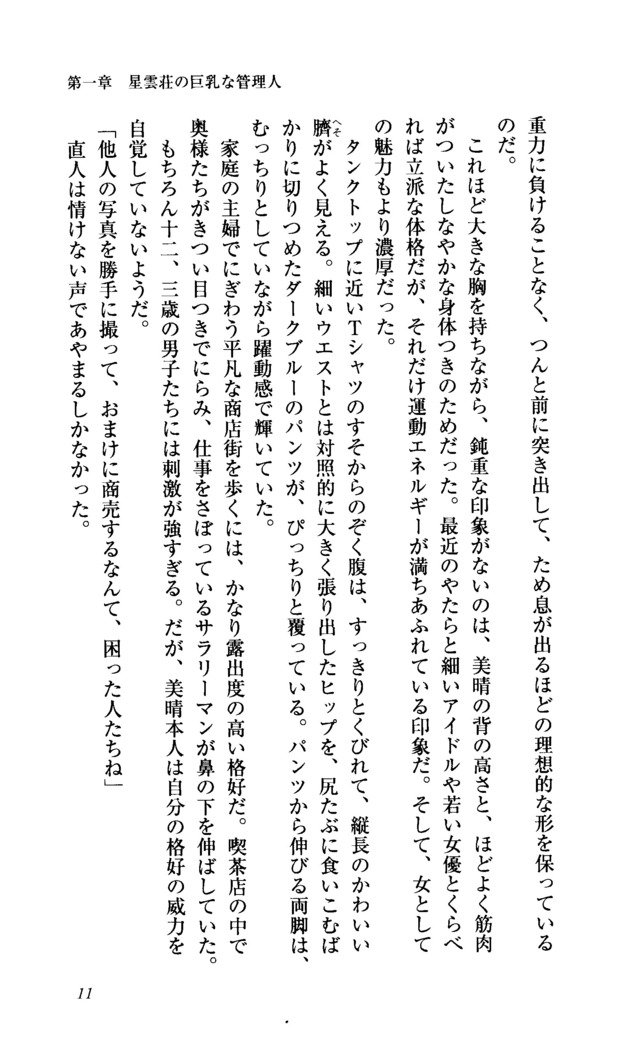 第一章　星雲荘の巨乳な管理人
重力に負けることなく、つんと前に突き出して、ため息が出るほどの理想的な形を保っている
のだ。
これほど大きな胸を持ちながら、鈍重な印象がないのは、美晴の背の高さと、ほどよく筋肉
がついたしなやかな身体つきのためだった。最近のやたらと細いアイドルや若い女優とくらべ
れば立派な体格だが、それだけ運動エネルギーが満ちあふれている印象だ。そして、女として
の魅力もより濃厚だった。
タンクトップに近いTシャツのすそからのぞく腹は、すっきりとくびれて、縦長のかわいい
臍へそがよく見える。細いウエストとは対照的に大きく張り出したヒップを、尻たぶに食いこむば
かりに切りつめたダークブルーのパンツが、ぴっちりと覆っている。パンツから伸びる両脚は、
むっちりとしていながら躍動感で輝いていた。
家庭の主婦でにぎわう平凡な商店街を歩くには、かなり露出度の高い格好だ。喫茶店の中で
奥様たちがきつい目つきでにらみ、仕事をさぼっているサラリーマンが鼻の下を伸ばしていた。
もちろん十二、三歳の男子たちには刺激が強すぎる。だが、美晴本人は自分の格好の威力を
自覚していないようだ。
「他人の写真を勝手に撮って、おまけに商売するなんて、困った人たちね」
直人は情けない声であやまるしかなかった。
11